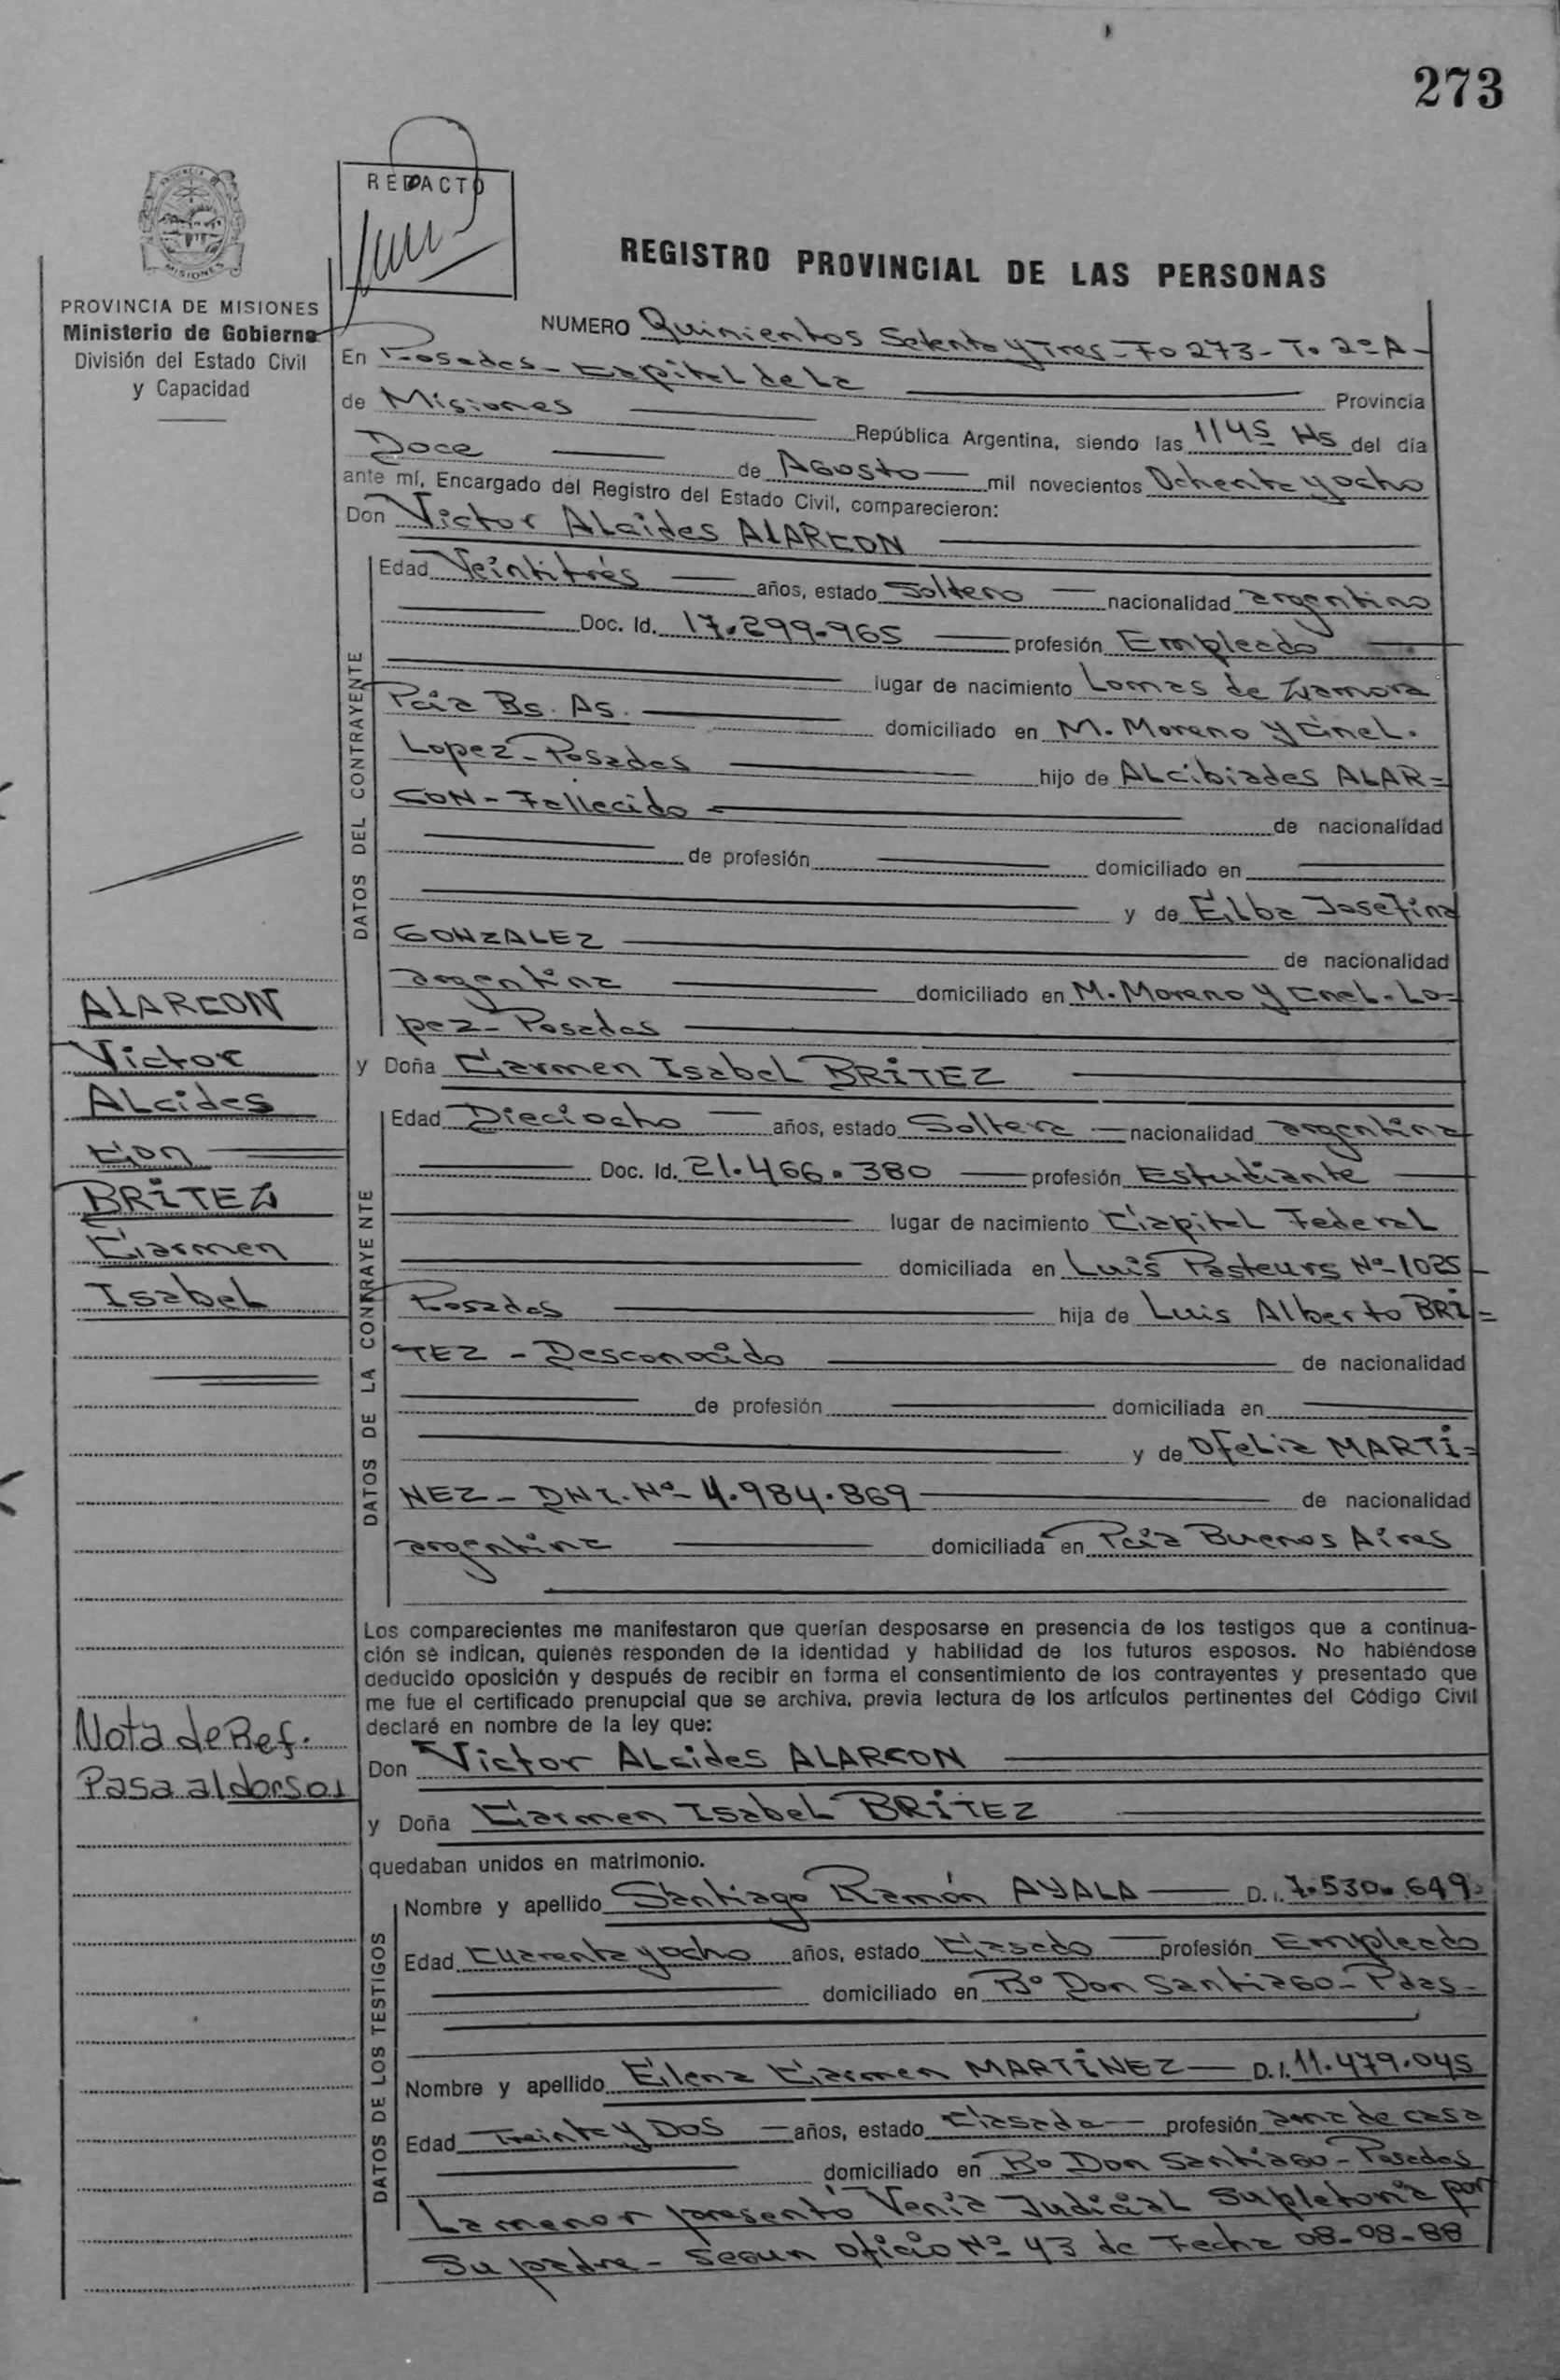 273
PROVINCIA DE MISIONES
MISIONES
PROVINCIA DE MISIONES
Ministerio de Gobierno
División del Estado Civil
y Capacidad
REDACTO
REGISTRO PROVINCIAL DE LAS PERSONAS
NUMERO Quinientos Setenta y Tres - Fo 273 - To 2º A -
En Posadas - Capital de La Provincia
de Misiones República Argentina, siendo las 1145 Hs del día
Doce de Agosto mil novecientos Ochenta y ocho
ante mí, Encargado del Registro del Estado Civil, comparecieron:
Don Victor Alcides ALARCON
DATOS DEL CONTRAYENTE
Edad Veintitrés años, estado Soltero nacionalidad argentino
Doc. Id. 17.299.965 profesión Empleado
lugar de nacimiento Lomas de Zamora
Pcia Bs. As. domiciliado en M. Moreno y Cnel.
Lopez - Posadas hijo de ALcibiades ALAR=
CON - Fallecido de nacionalidad
de profesión domiciliado en
y de Elba Josefina
GONZALEZ de nacionalidad
argentina domiciliado en M. Moreno y Cnel. Lo=
pez - Posadas
y Doña Carmen Isabel BRITEZ
DATOS DE LA CONTRAYENTE
Edad Dieciocho años, estado Soltera nacionalidad argentina
Doc. Id. 21.466.380 profesión Estudiante
lugar de nacimiento Capital Federal
domiciliada en Luis Pasteurs Nº 1025
Posadas hija de Luis Alberto BRI=
TEZ - Desconocido de nacionalidad
de profesión domiciliada en
y de Ofelia MARTI=
NEZ - DNI. Nº 4.984.869 de nacionalidad
argentina domiciliada en Pcia Buenos Aires
Los comparecientes me manifestaron que querían desposarse en presencia de los testigos que a continua-
ción se indican, quienes responden de la identidad y habilidad de los futuros esposos. No habiéndose
deducido oposición y después de recibir en forma el consentimiento de los contrayentes y presentado que
me fue el certificado prenupcial que se archiva, previa lectura de los artículos pertinentes del Código Civil
declaré en nombre de la ley que:
Don Victor ALcides ALARCON
y Doña Carmen Isabel BRITEZ
quedaban unidos en matrimonio.
DATOS DE LOS TESTIGOS
Nombre y apellido Santiago Ramón AYALA D.I. 7.530.649
Edad Cuarenta y ocho años, estado Casado profesión Empleado
domiciliado en Bº Don Santiago - Pdas -
Nombre y apellido Elena Carmen MARTINEZ D.I. 11.479.045
Edad Treinta y Dos años, estado Casada profesión ama de casa
domiciliado en Bº Don Santiago - Posadas
La menor presentó Venia Judicial Supletoria por
Su padre - Segun Oficio Nº 43 de Fecha 08-08-88
ALARCON
Victor
ALcides
Con
BRITEZ
Carmen
Isabel
Nota de Ref.
Pasa al dorso